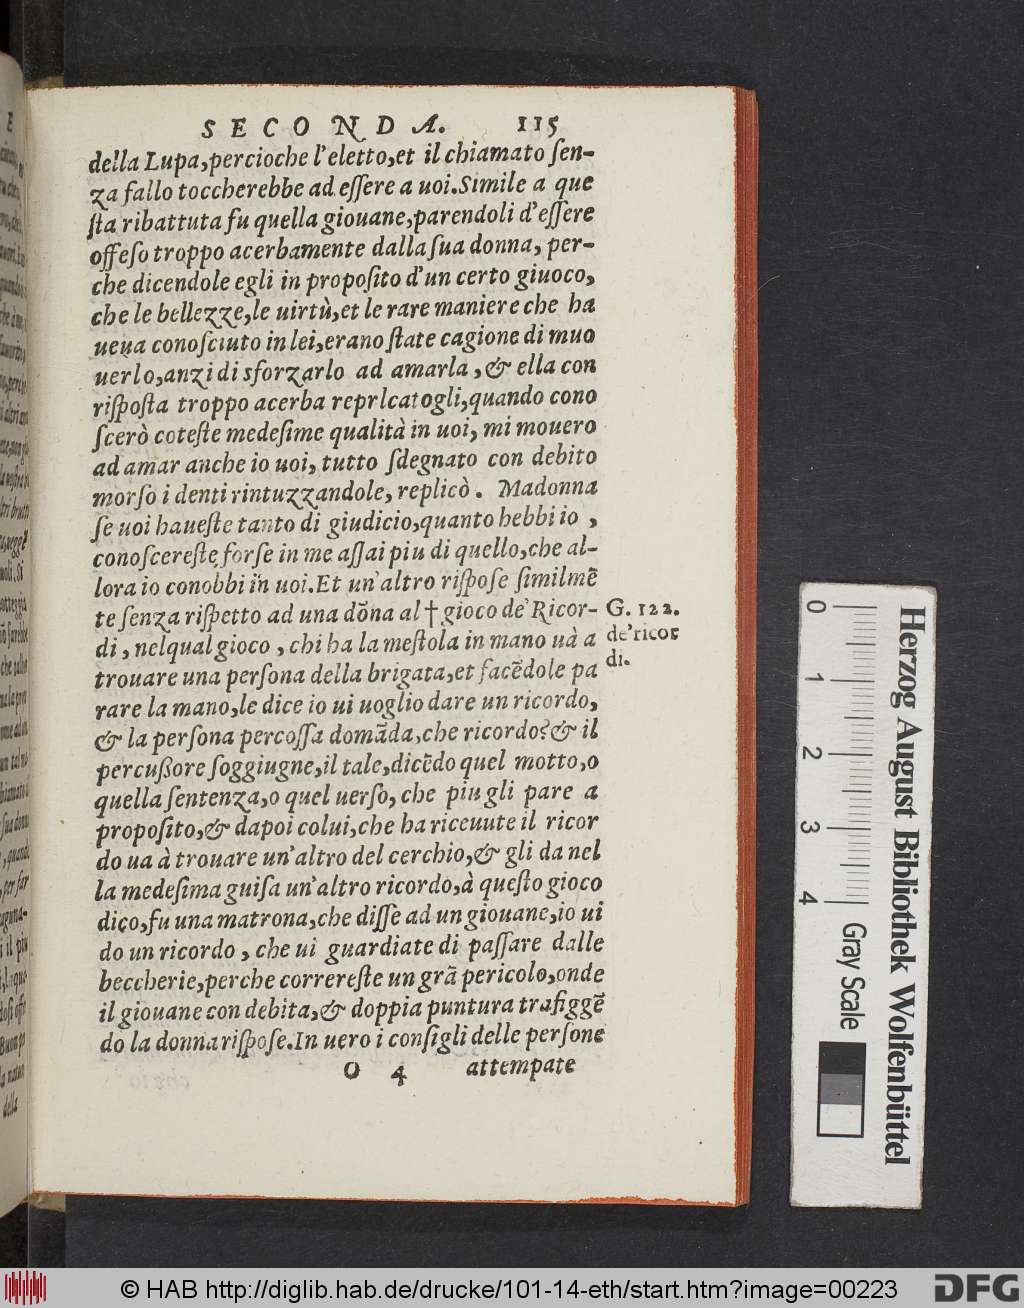 SECONDA. 115
della Lupa,percioche l'eletto,et il chiamato ſen-
za fallo toccherebbe ad eſſere a uoi.Simile a que
ſta ribattuta fu quella giouane,parendoli d'eſſere
offeſo troppo acerbamente dalla ſua donna, per-
che dicendole egli in propoſito d'un certo giuoco,
che le bellezze,le uirtù,et le rare maniere che ha
ueua conoſciuto in lei,erano ſtate cagione di muo
uerlo,anzi di sforzarlo ad amarla ,& ella con
riſpoſta troppo acerba reprlcatogli,quando cono
ſcerò coteſte medeſime qualità in uoi, mi mouero
ad amar anche io uoi, tutto ſdegnato con debito
morſo i denti rintuzzandole, replicò . Madonna
ſe uoi haueſte tanto di giudicio,quanto hebbi io ,
conoſcereſte forſe in me aſſai piu di quello,che al-
lora io conobbi in uoi.Et un'altro riſpoſe ſimilmē
te ſenza riſpetto ad una dōna al † gioco de' Ricor-
di , nelqual gioco , chi ha la meſtola in mano uà a
trouare una perſona della brigata,et facēdole pa
rare la mano,le dice io ui uoglio dare un ricordo,
& la perſona percoſſa domāda,che ricordo?& il
percußore ſoggiugne,il tale,dicēdo quel motto,o
quella ſentenza,o quel uerſo, che piu gli pare a
propoſito,& dapoi colui,che ha riceuute il ricor
do ua à trouare un'altro del cerchio,& gli da nel
la medeſima guiſa un'altro ricordo,à queſto gioco
dico,fu una matrona,che diſſe ad un giouane,io ui
do un ricordo , che ui guardiate di paſſare dalle
beccherie,perche correreſte un grā pericolo,onde
il giouane con debita,& doppia puntura trafiggē
do la donna riſpoſe.In uero i conſigli delle perſone
O 4 attempate
G. 122.
de'ricor
di.
0 1 2 3 4
Gray Scale
Herzog August Bibliothek Wolfenbüttel
© HAB http://diglib.hab.de/drucke/101-14-eth/start.htm?image=00223
DFG